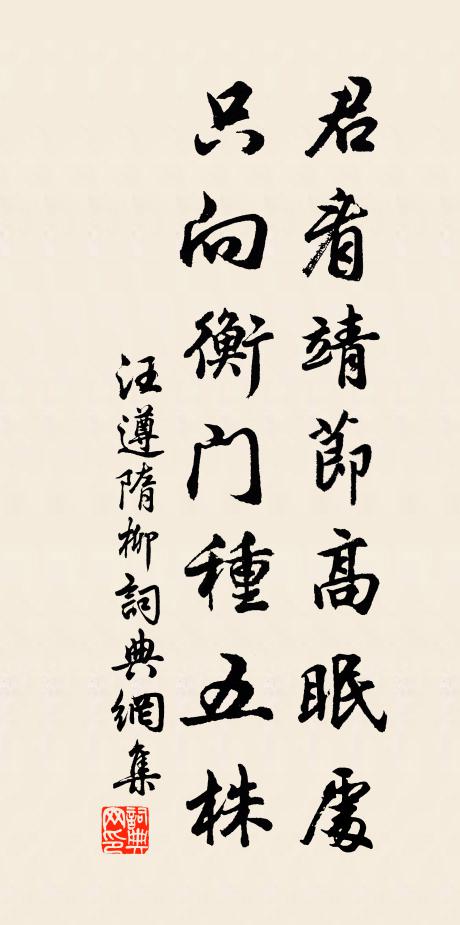 君看靖節高眠處
只向衡門種五株
汪遵隋柳詞典網集
詞典網印